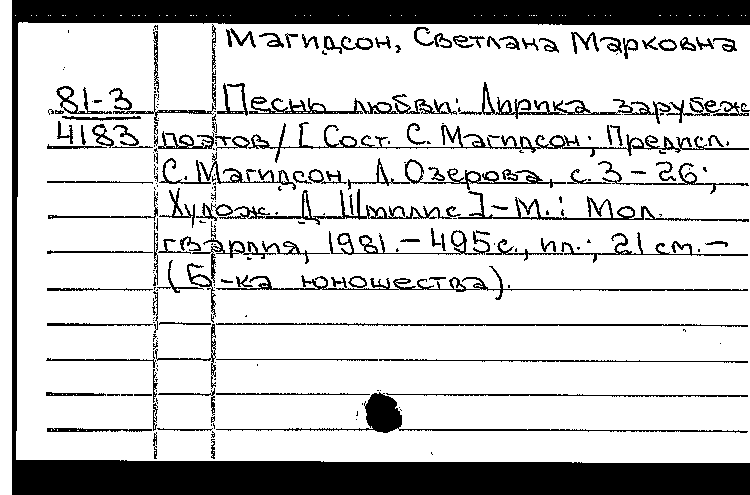 Магидсон, Светлана Марковна
81-3
4183
Песнь любви: Лирика зарубеж
поэтов / [Сост. С. Магидсон; Предисл.
С. Магидсон, Л. Озерова, с. 3-26;
Худож. Д. Шимилис]. - М.: Мол.
гвардия, 1981. - 495 с., ил.; 21 см. -
(Б-ка юношества).